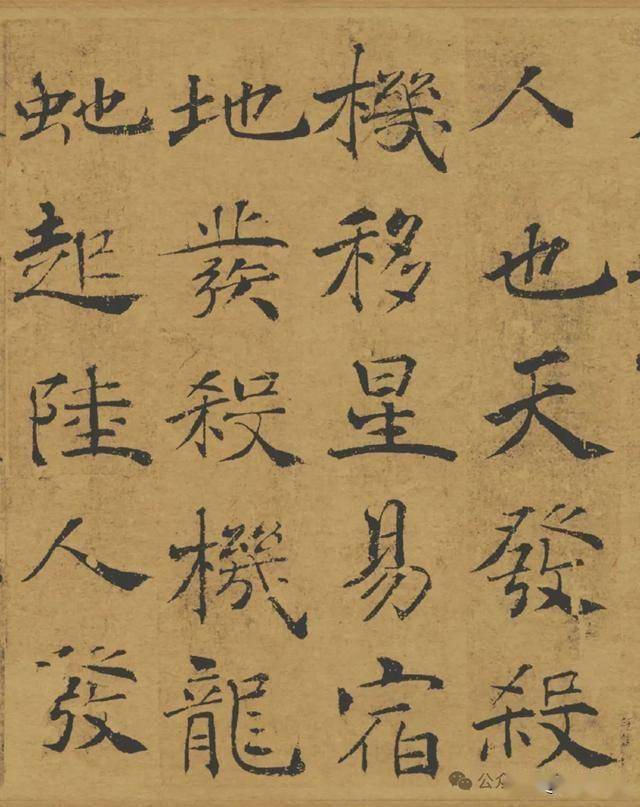 人也天發殺
機移星易宿
地發殺機龍
虵起陸人發
公众